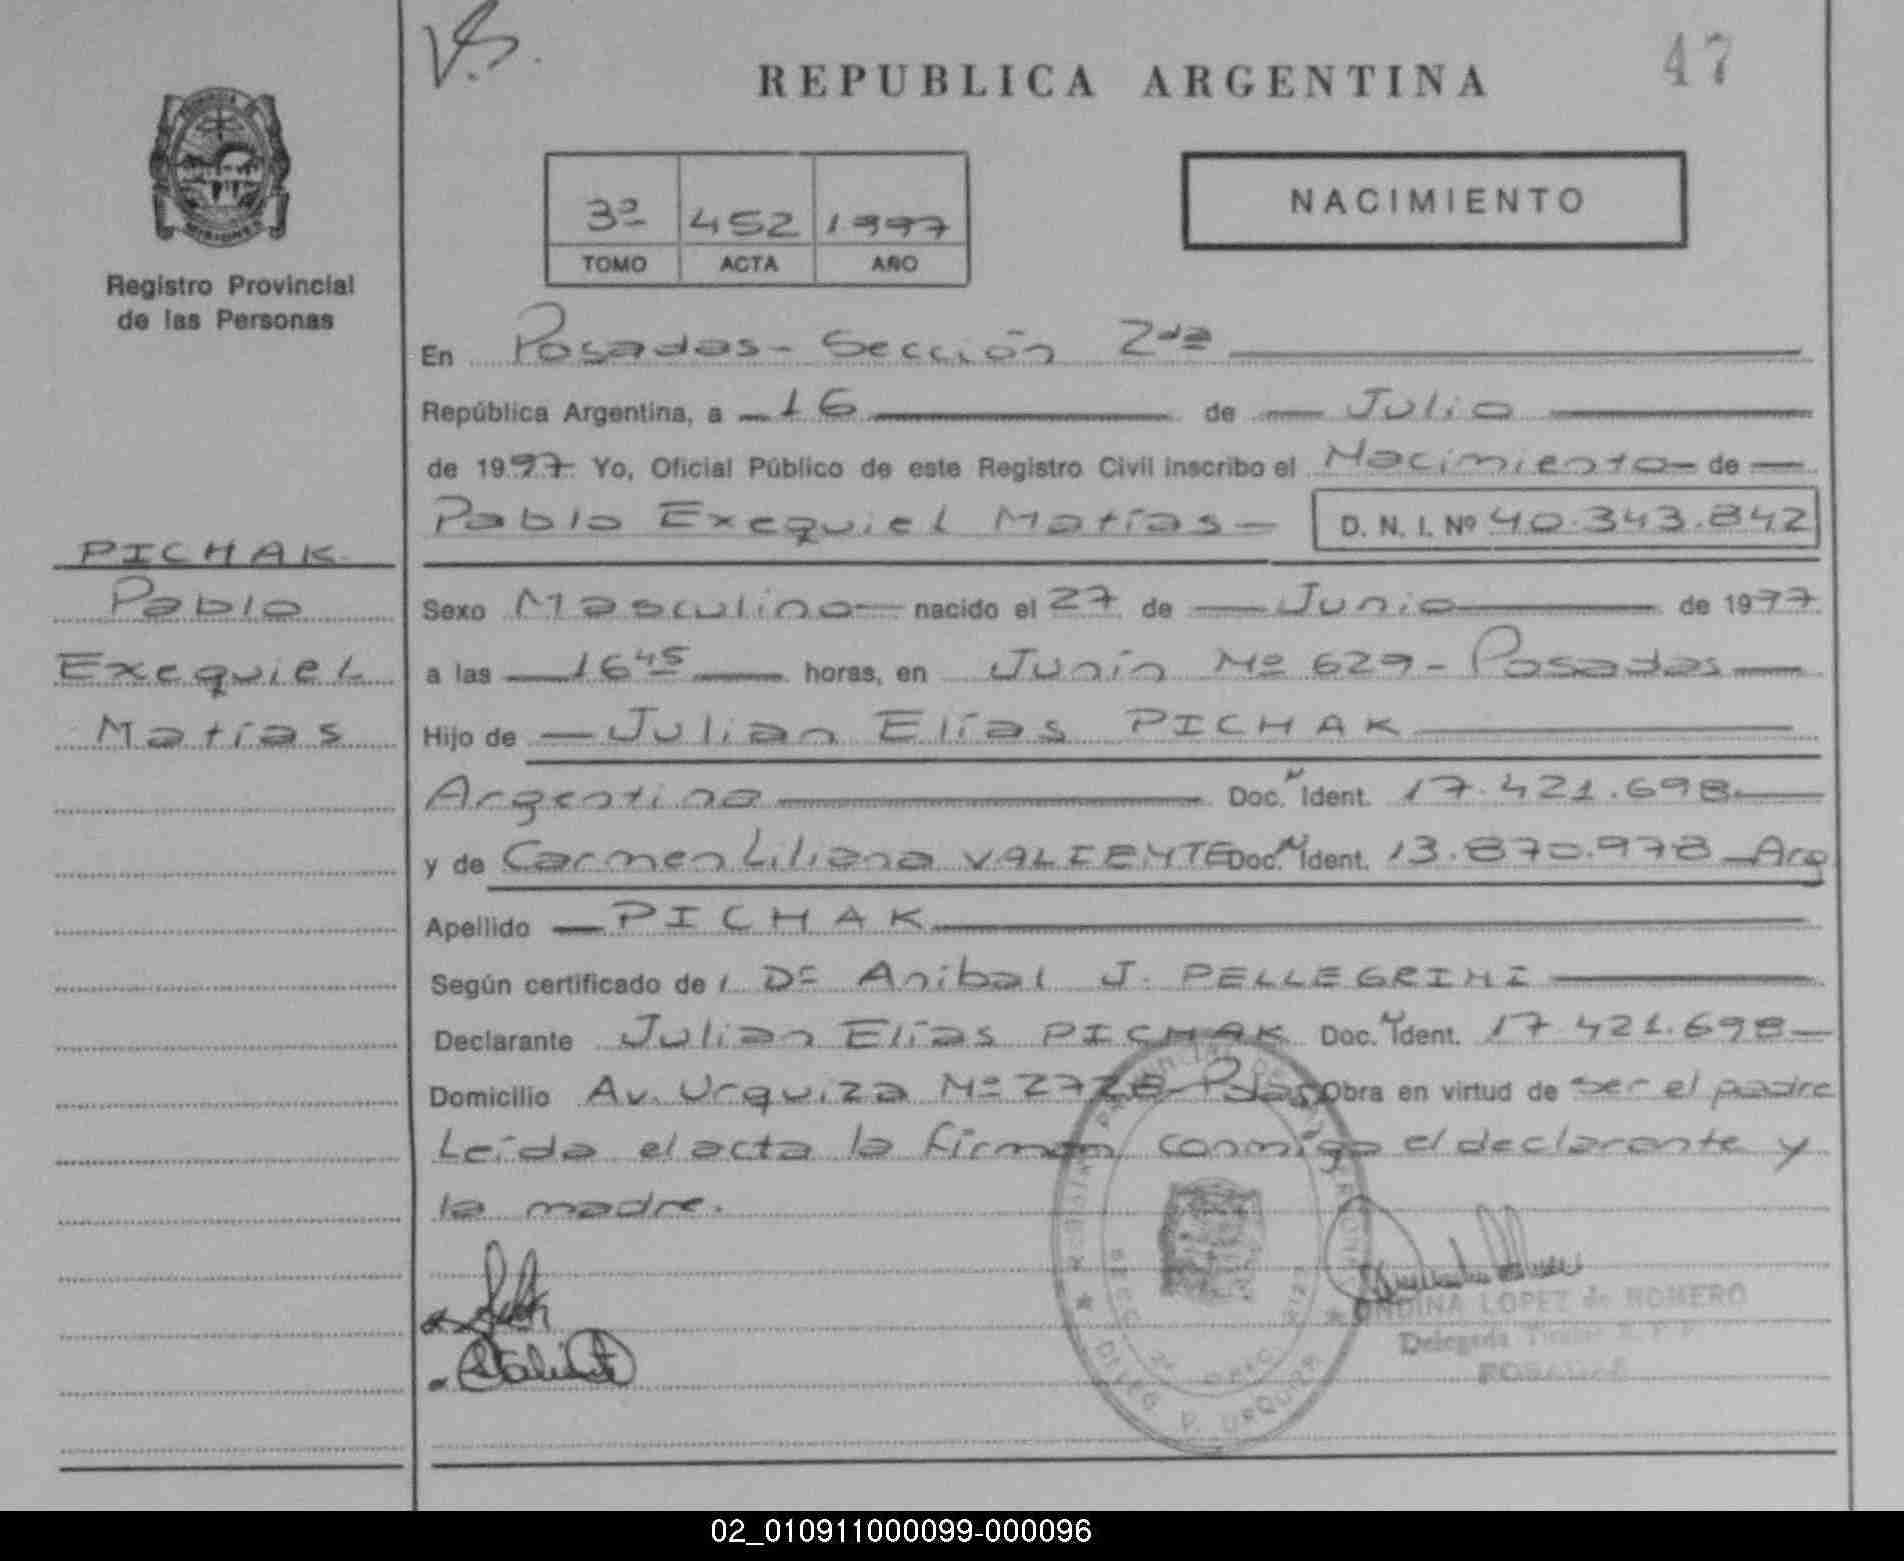 V.S.
47
REPUBLICA ARGENTINA
MISIONES
Registro Provincial
de las Personas
3º 452 1997
TOMO ACTA AÑO
NACIMIENTO
En Posadas - Sección 2da
República Argentina, a 16 de Julio
de 1997 Yo, Oficial Público de este Registro Civil inscribo el Nacimiento de
Pablo Exequiel Matías D. N. I. Nº 40.343.842
PICHAK
Pablo
Exequiel
Matías
Sexo Masculino nacido el 27 de Junio de 1977
a las 16 45 horas, en Junín Nº 629 - Posadas
Hijo de Julian Elías PICHAK
Argentino Doc. N Ident. 17.421.698
y de Carmen Liliana VALIENTE Doc. N Ident. 13.870.978 Arg
Apellido PICHAK
Según certificado de Dr Anibal J. PELLEGRINI
Declarante Julian Elías PICHAK Doc. N Ident. 17.421.698
Domicilio Av. Urquiza Nº 2728 - Pdas Obra en virtud de ser el padre
Leída el acta la firman conmigo el declarante y
la madre.
ONDINA LOPEZ de ROMERO
Delegada Titular R. P. P.
POSADAS
DELEG. P. URQUIZA
02_010911000099-000096